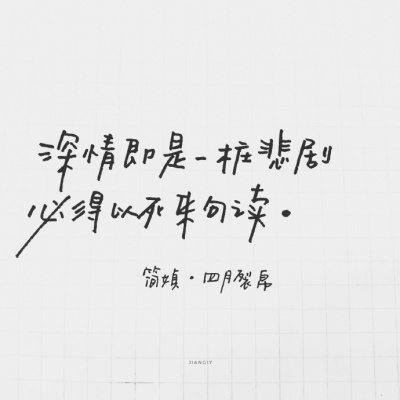 深情即是一桩悲剧
必得以死来句读。
简媜·四月裂帛
JIANGYY